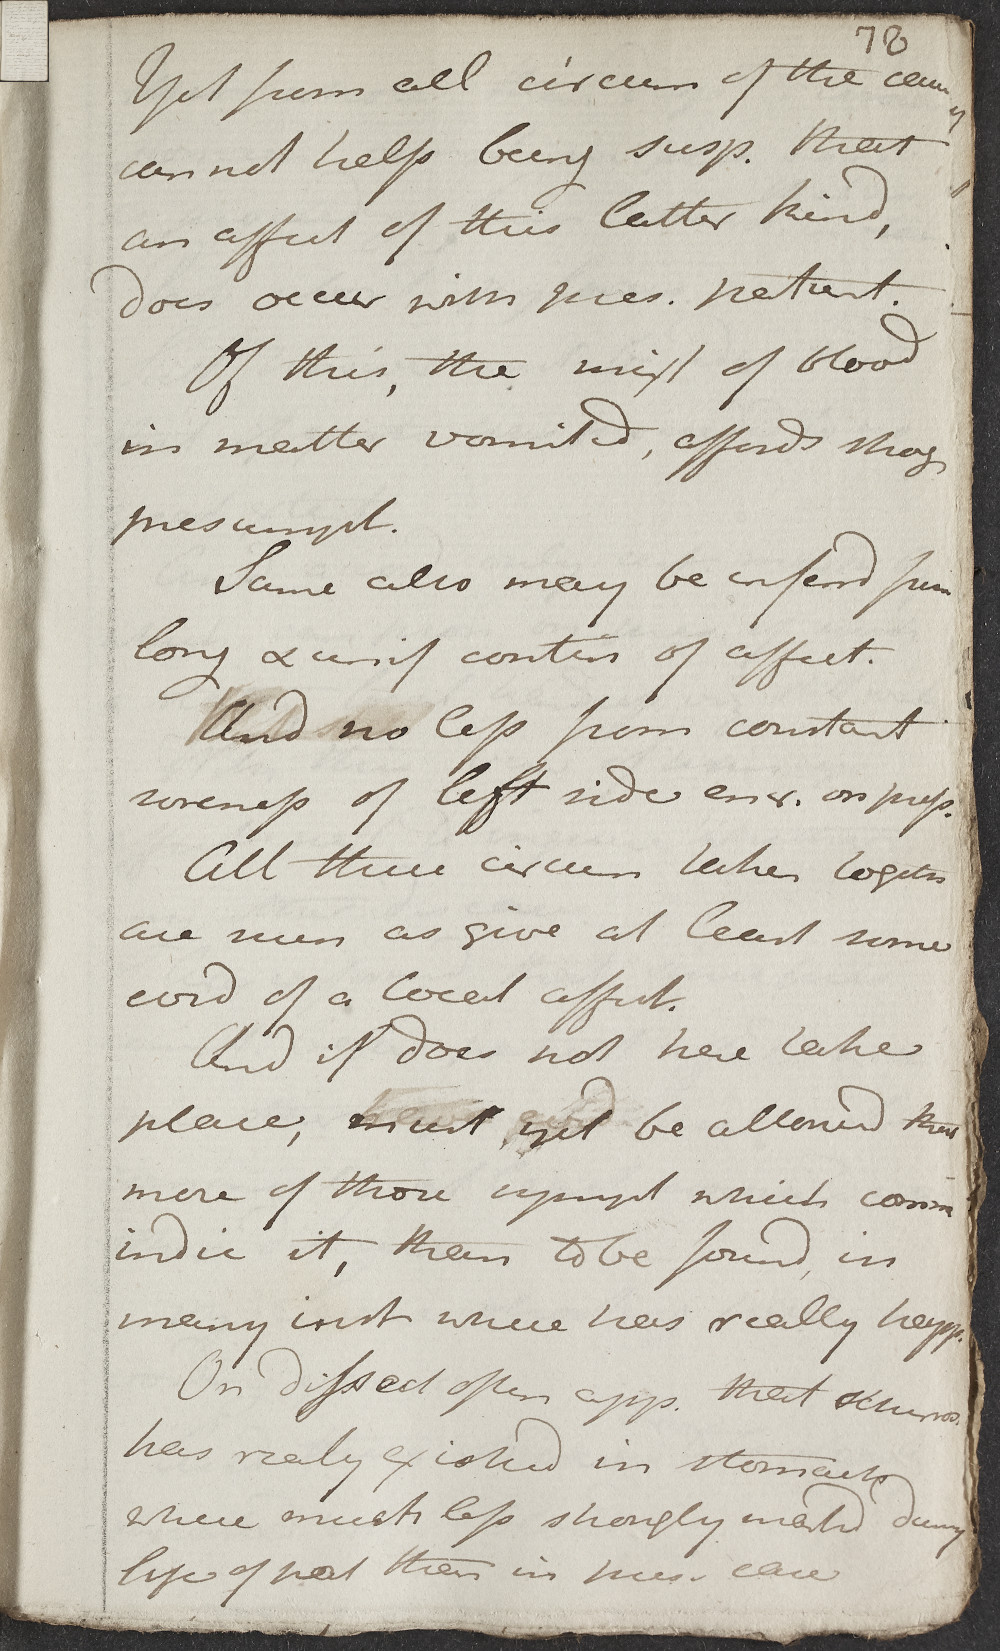 78
Yet from all circum of the case
cannot help being susp. that
an affect of this latter kind,
does occur with pres. patient.
Of this, the mixt of blood
in matter vomited, affords strong
presumpt.
Same also may be inferd from
long & unif contin of affect.
And no less from constant
soreness of left side encr. on press.
All these circum taken togethr
are such as give at least some
evid of a local affect.
And if does not here take
place, must yet be allowed that
more of those sympt which comm
indic it, than to be found in
many inst where has really happ.
On dissect often app. that schirros.
has realy existed in stomach
where much less strongly markd during
life of pat than in pres. case